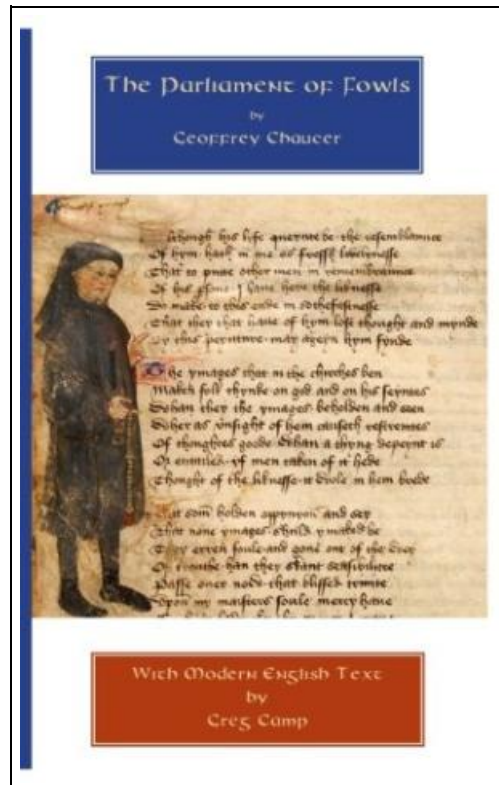 The Parliament of Fowls
by
Geoffrey Chaucer
Although his lyfe queynte be the resemblaunce
Of hym hath in me so fressh lyvelynesse
That to putte other men in remembraunce
Of his persone I have here the liknesse
Do make to this ende in sothfastnesse
That they that have of hym lost thought and mynde
By this peynture may ageyn hym fynde
The ymages that in the chirches ben
Maken folk thynke on god and on his seyntes
Whan they the ymages beholden and seen
Of thoughtes goode Whan a thyng depeynt is
Or entailed if men taken of it hede
Thought of the liknesse it wole in hem brede
Yit somme holden oppynyon and sey
That none ymages shuld ymaked be
They erren foule and gone out of the wey
Of trouthe han they skant sensibilitee
Passe over now that blissed trinite
Upon my maistres soule mercy have
With Modern English Text
by
Greg Camp